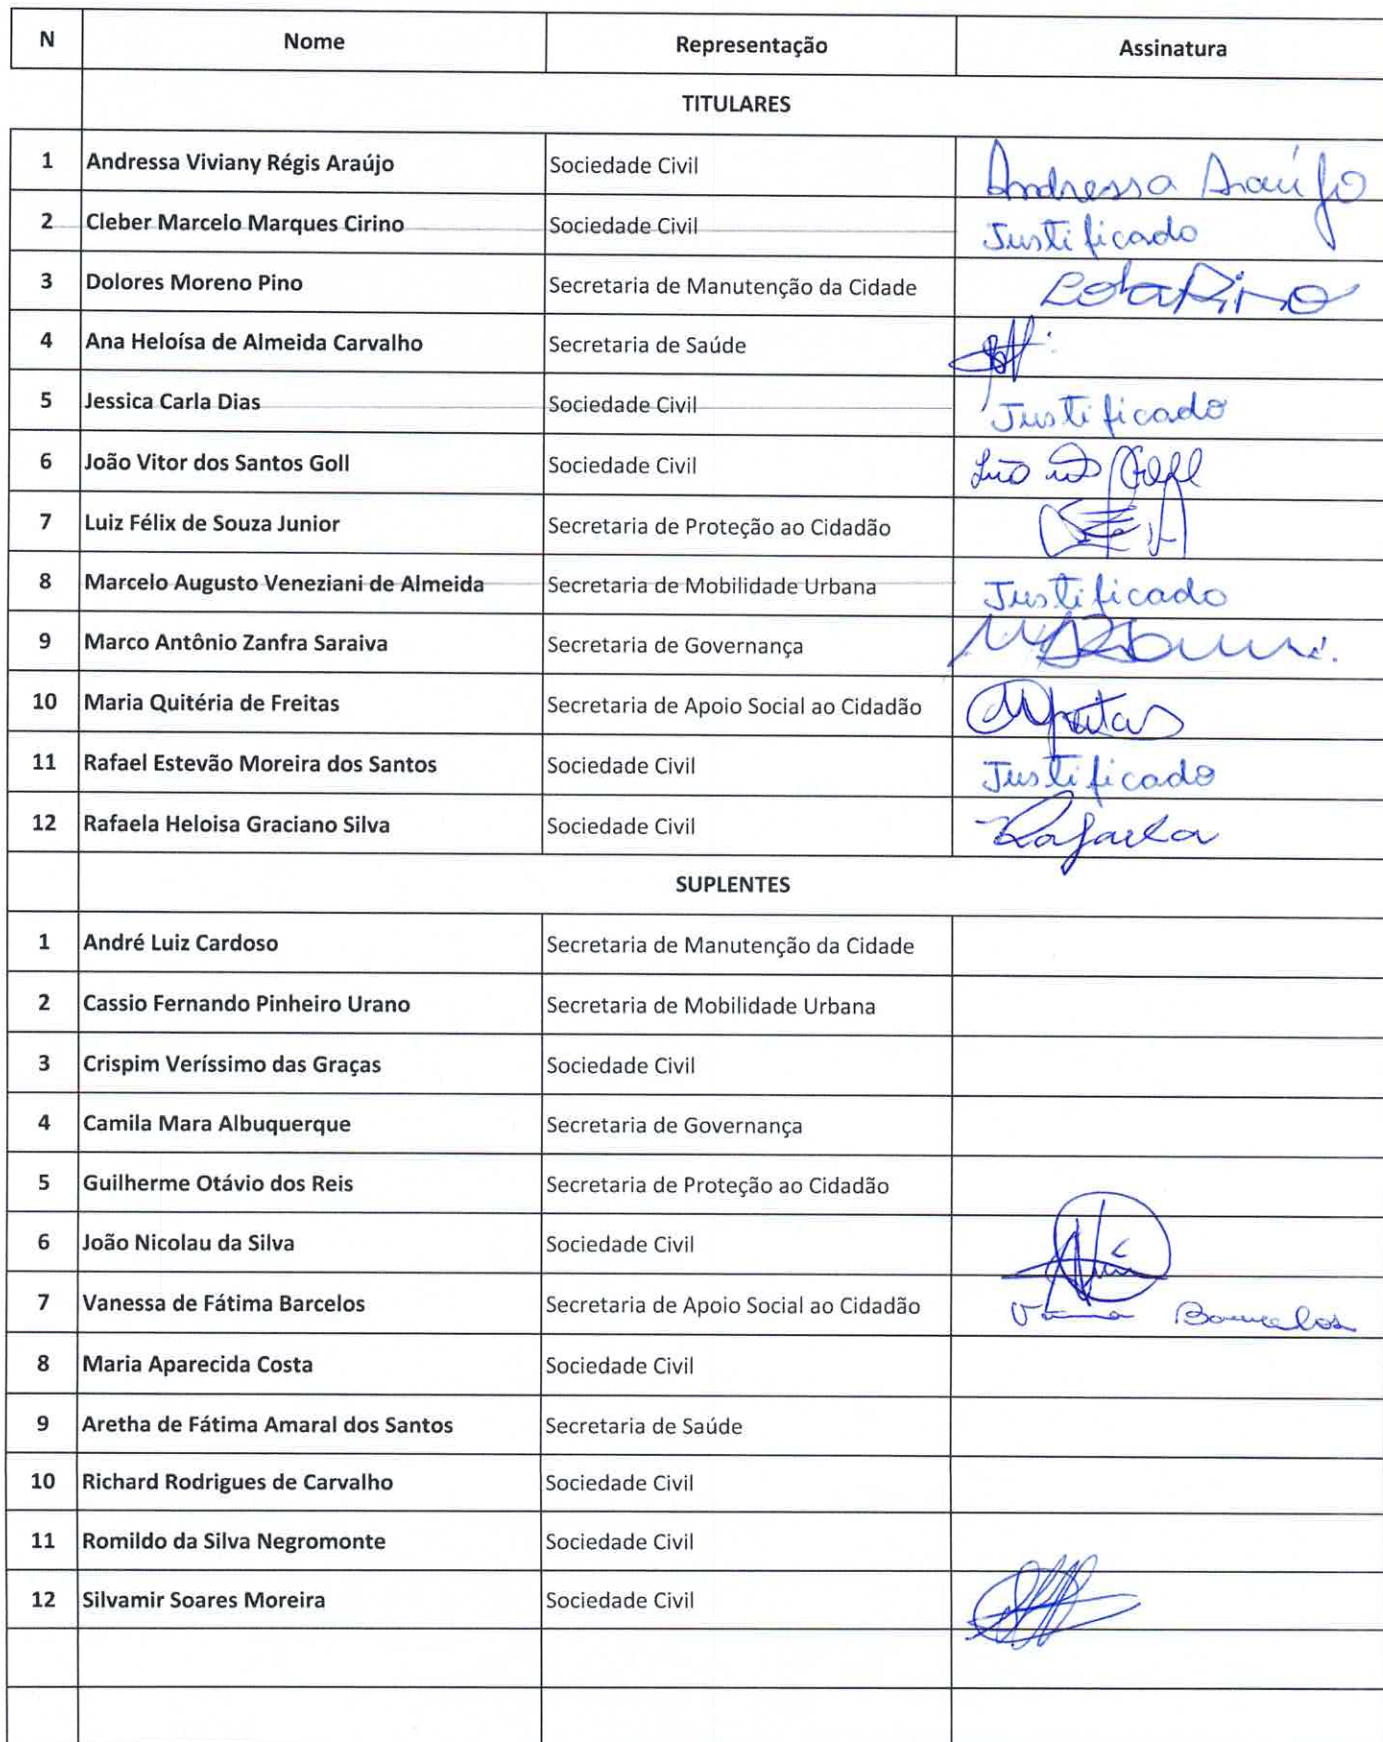 N Nome Representação Assinatura
TITULARES
1 Andressa Viviany Régis Araújo Sociedade Civil Andressa Araújo
2 Cleber Marcelo Marques Cirino Sociedade Civil Justificado
3 Dolores Moreno Pino Secretaria de Manutenção da Cidade Lola Pino
4 Ana Heloísa de Almeida Carvalho Secretaria de Saúde
5 Jessica Carla Dias Sociedade Civil Justificado
6 João Vitor dos Santos Goll Sociedade Civil
7 Luiz Félix de Souza Junior Secretaria de Proteção ao Cidadão
8 Marcelo Augusto Veneziani de Almeida Secretaria de Mobilidade Urbana Justificado
9 Marco Antônio Zanfra Saraiva Secretaria de Governança
10 Maria Quitéria de Freitas Secretaria de Apoio Social ao Cidadão
11 Rafael Estevão Moreira dos Santos Sociedade Civil Justificado
12 Rafaela Heloisa Graciano Silva Sociedade Civil Rafaela
SUPLENTES
1 André Luiz Cardoso Secretaria de Manutenção da Cidade
2 Cassio Fernando Pinheiro Urano Secretaria de Mobilidade Urbana
3 Crispim Veríssimo das Graças Sociedade Civil
4 Camila Mara Albuquerque Secretaria de Governança
5 Guilherme Otávio dos Reis Secretaria de Proteção ao Cidadão
6 João Nicolau da Silva Sociedade Civil
7 Vanessa de Fátima Barcelos Secretaria de Apoio Social ao Cidadão Barcelos
8 Maria Aparecida Costa Sociedade Civil
9 Aretha de Fátima Amaral dos Santos Secretaria de Saúde
10 Richard Rodrigues de Carvalho Sociedade Civil
11 Romildo da Silva Negromonte Sociedade Civil
12 Silvamir Soares Moreira Sociedade Civil